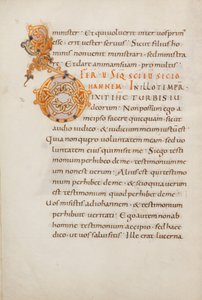 minister · Et qui voluerit inter vos primus
esse · erit vester servus · Sicut filius ho
minis non venit ministrari · sed ministra
re · Et dare animam suam · pro multis ·
FER · V · SEQ SCI EV SECD IO
HANNEM · IN ILLO TEMPR
DIXIT IHC TURBIS IU
daeorum · Non possum ego a me
ipso facere quicquam · sicut
audio iudico · & iudicium meum iustum est
Quia non quero voluntatem meam · sed vo
luntatem eius qui misit me · Si ego testi
monium perhibeo de me · testimonium me
um non est verum · Alius est qui testimo
nium perhibet de me · & scio quia verum
est testimonium quod perhibet de me ·
Vos misistis ad iohannem · & testimonium
perhibuit veritati · Ego autem non ab
homine testimonium accipio · sed haec
dico · ut vos salvi sitis · Ille erat lucerna